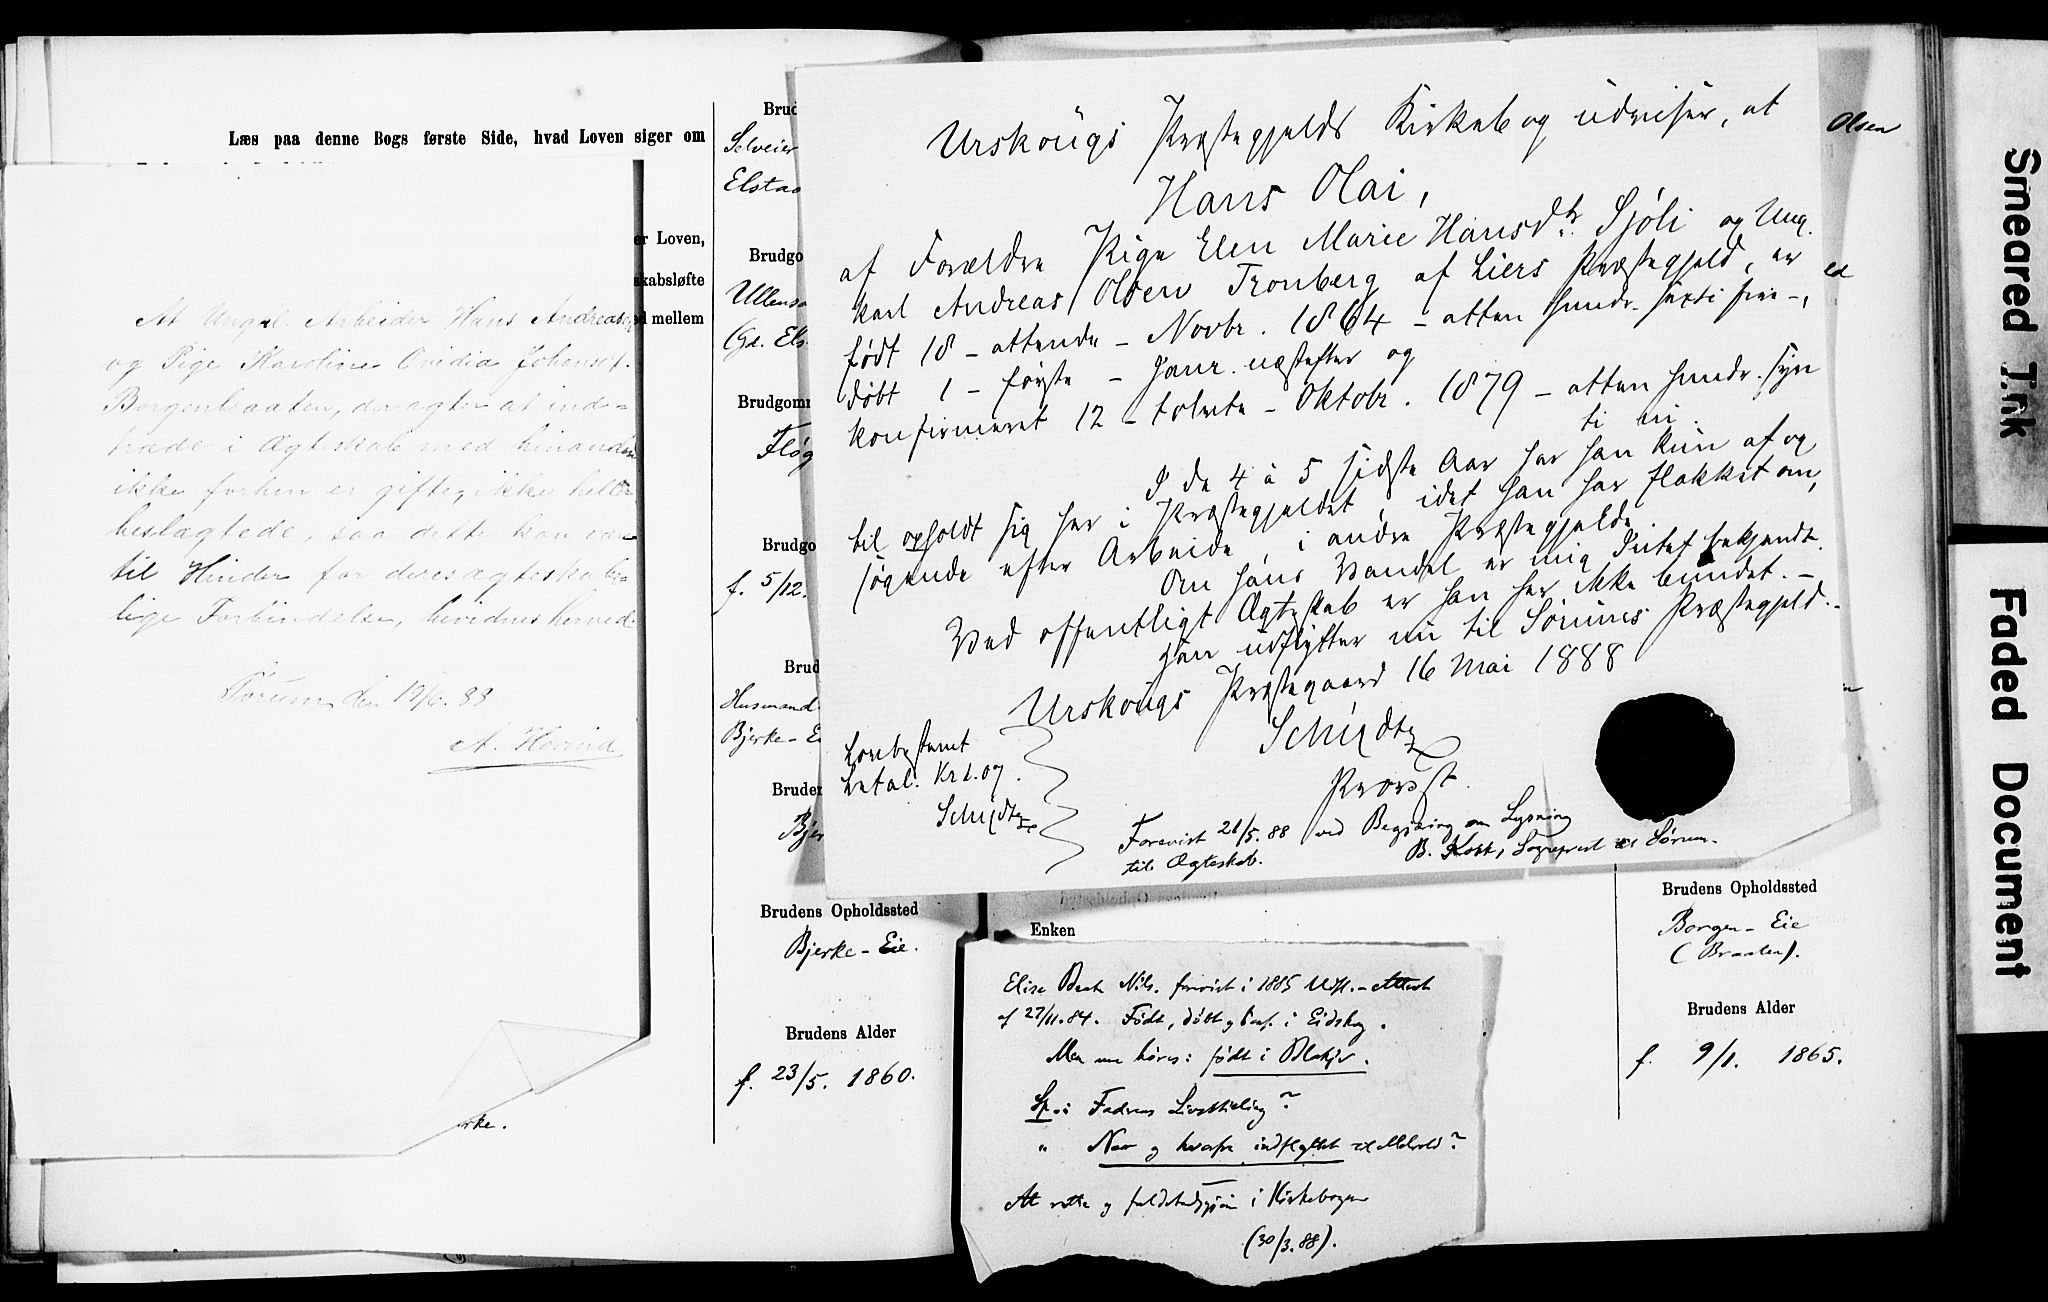 Læs paa denne Bogs første Side, hvad Loven siger om
er Loven,
skabsløfte
ed mellem
At Ungk. Arbeider Hans Andreas
og Pige Karoline Ovidia Johansd.
Borgenbraaten, der agter at ind-
træde i Ægteskab med hinanden
ikke forhen er gifte, ikke heller
beslægtede, saa dette kan være
til Hinder for deres ægteskabe-
lige Forbindelse, bevidnes herved
Sørum den 19/6. 88
A. Hovind
rke.
Brud
Selveier
Elstad
Brudgo
Ullensa
Gd. Els
Brudgomm
Fløg
Brudgo
f. 5/12.
Brud
Husmand
Bjerke - Ei
Bruden
Bjer
Brudens Opholdssted
Bjerke - Eie.
Brudens Alder
f. 23/5. 1860.
Urskougs Præstegjelds Kirkebog udviser, at
Hans Olai,
af Forældre Pige Elen Marie Hansdtr. Sjøli og Ung-
karl Andreas Olsen Tronberg af Liers Præstegjeld, er
født 18 - attende - Novbr. 1864 - atten hundr. sexti fire -,
døbt 1 - første - Janr. næstefter og
konfirmeret 12 - tolvte - Oktobr. 1879 - atten hundr. syv
ti ni.
I de 4 à 5 sidste Aar har han kun af og
til opholdt sig her i Præstegjeldet, idet han har flakket om,
søgende efter Arbeide, i andre Præstegjelde.
Om hans Vandel er mig Intet bekjendt.
Ved offentligt Ægteskab er han her ikke bundet. -
Han udflytter nu til Sørums Præstegjeld. -
Urskougs Præstegaard 16 Mai 1888
Schi
Provst.
Lovbestemt
betal. Kr 1.07.
Forevist 21/5. 88 ved Begjæring om Lysning
til Ægteskab.
B. Sogneprest til Sørum.
Olsen
ed
Enken
Elise Beate Nils. forevist i 1885 Udfl. - Attest
af 27/11.84. Født, døbt og konf. i Eidskog.
Men nu høres: født i Blakjer.
Sp.: Fadrens Livsstilling?
" Naar og hvorfra indflyttet til
At rette og fuldstændiggjøre i Kirkebogen
(30/3.88).
Brudens Opholdssted
Borgen - Eie
(Braaten).
Brudens Alder
f. 9/1. 1865.
Smeared Ink
Faded Document